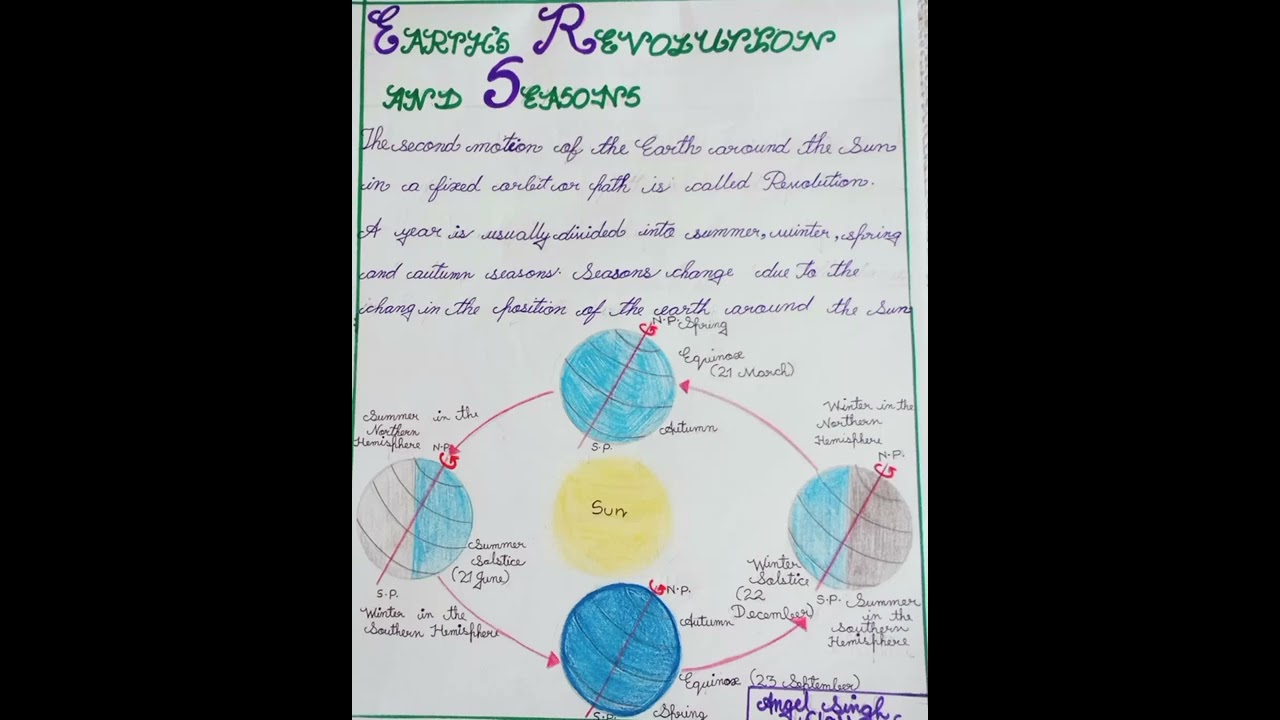 EARTH'S REVOLUTION
AND SEASONS
The second motion of the Earth around the Sun
in a fixed orbit or path is called Revolution.
A year is usually divided into summer, winter, spring
and autumn seasons. Seasons change due to the
chang in the position of the earth around the Sun
N.P. Spring
Equinox
(21 March)
Autumn
S.P.
Summer in the
Northern
Hemisphere
N.P.
Summer
Solstice
(21 June)
S.P.
Winter in the
Southern Hemisphere
Sun
Winter in the
Northern
Hemisphere
N.P.
Winter
Solstice
(22
December)
S.P. Summer
in the
Southern
Hemisphere
N.P.
Autumn
Equinox (23 September)
S.P.
Spring
Angel Singh